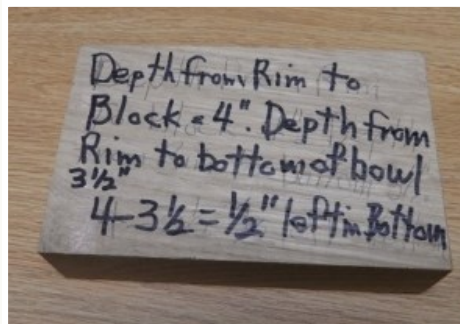 Depth from Rim to
Block = 4". Depth from
Rim to bottom of bowl
3½"
4-3½ = ½" left in Bottom